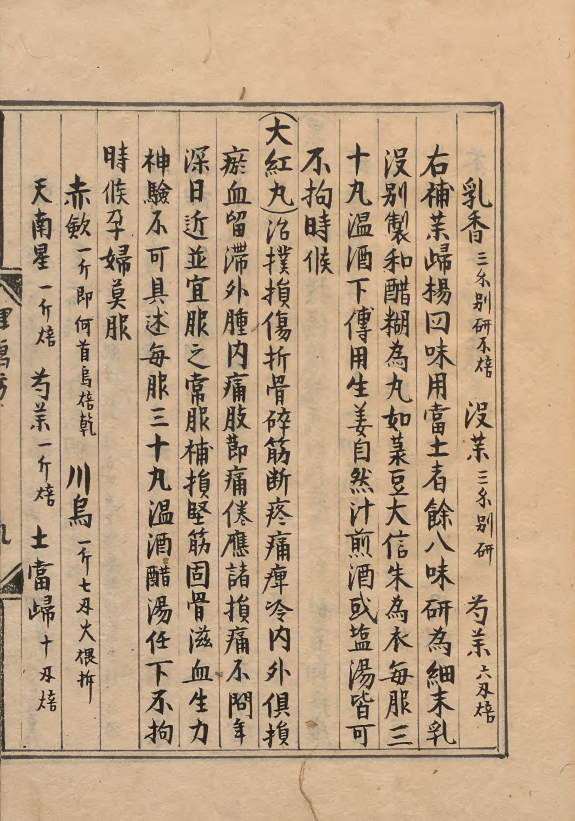 乳香三分别研不焙 没藥三分别研 芍藥六刄焙
右補藥歸楊四味用當土者餘八味研為細末乳
没别製和醋糊為丸如菉豆大信朱為衣每服三
十丸温酒下傅用生姜自然汁煎酒或塩湯皆可
不拘時候
(大紅丸)治撲損傷折骨碎筋断疼痛痺冷内外俱損
瘀血留滯外腫内痛肢節痛倦應諸損痛不問年
深日近並宜服之常服補損堅筋固骨滋血生力
神驗不可具述每服三十丸温酒醋湯任下不拘
時候孕婦莫服
赤歛一斤即何首烏焙乾 川烏一斤七刄火煨拆
天南星一斤焙 芍藥一斤焙 土當歸十刄焙
九